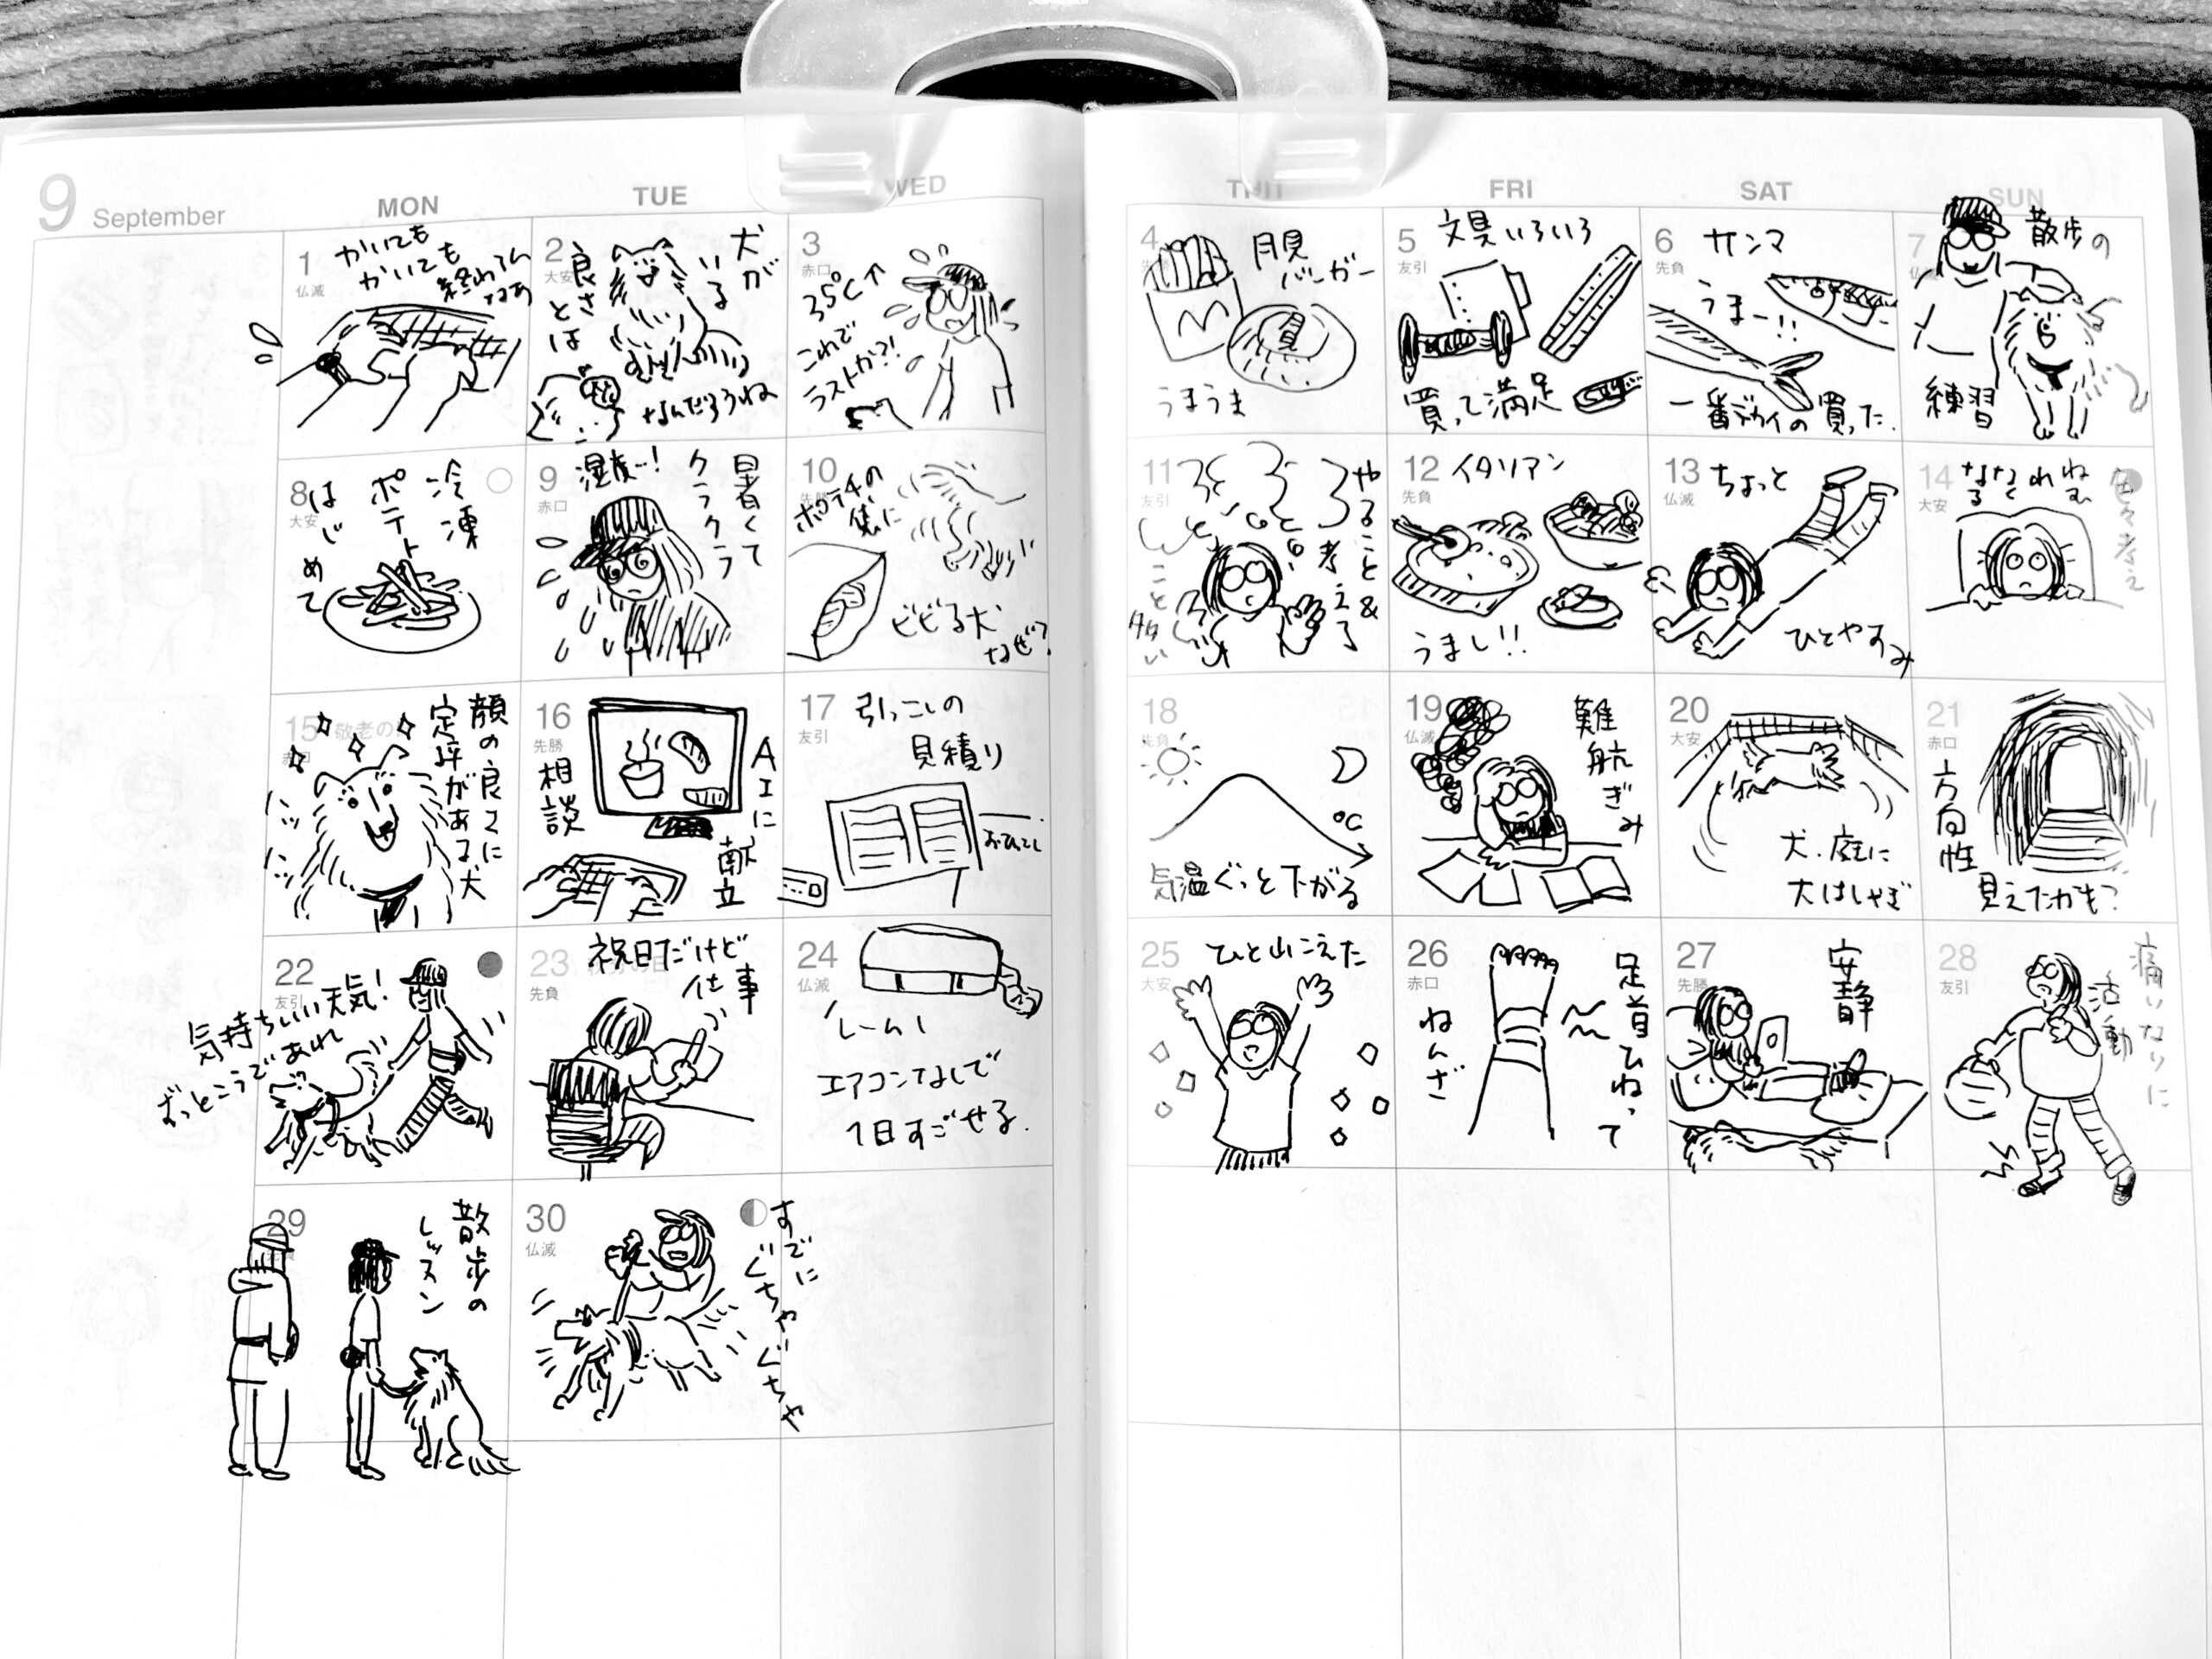 9 September
MON
TUE
WED
THU
FRI
SAT
SUN
1
仏滅
かいても
かいても
終わらん
なあ
2
大安
犬が
いる
良さ
とは
なんだろうね
3
赤口
35℃↑
これで
ラストか?!
4
先勝
月見
バーガー
うまうま
5
友引
文具いろいろ
買って満足
6
先負
サンマ
うまー!!
一番デカイの買った.
7
仏滅
散歩の
練習
8
大安
冷凍
ポテト
はじめて
9
赤口
湿度…!
暑くて
クラクラ
10
先勝
ポテチの
袋に
ビビる犬
なぜ?
11
友引
やること&
考える
こと
多い
12
先負
イタリアン
うまし!!
13
仏滅
ちょっと
ひとやすみ
14
大安
色々考え
ねむ
れ
なく
なる
15
赤口
敬老の
顔の良さに
定評がある犬
16
先勝
AIに
献立
相談
17
友引
引っこしの
見積り
18
先負
℃
気温ぐっと下がる
19
仏滅
難航ぎみ
20
大安
犬、庭に
大はしゃぎ
21
赤口
方向性
見えたかも?
22
友引
気持ちいい天気!
ずっとこうであれ
23
先負
祝日だけど
仕事
24
仏滅
エアコンなしで
1日すごせる.
25
大安
ひと山こえた
26
赤口
足首ひねって
ねんざ
27
先勝
安静
28
友引
痛いなりに
活動
29
散歩の
レッスン
30
仏滅
すでに
ぐちゃぐちゃ